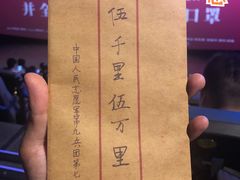 并
口罩
伍千里伍万里
中国人民志愿军第九兵团第七